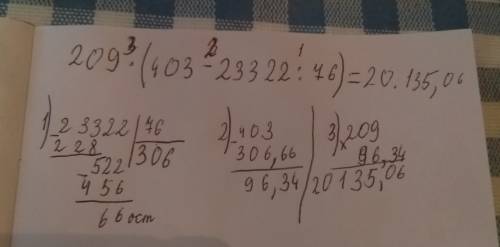 3 2 1
209 · (403 - 23322 : 76) = 20.135,06
1) 23322 | 76
- 228 306
- 522
456
66 ост
2) - 403
306,66
96,34
3) × 209
96,34
20135,06